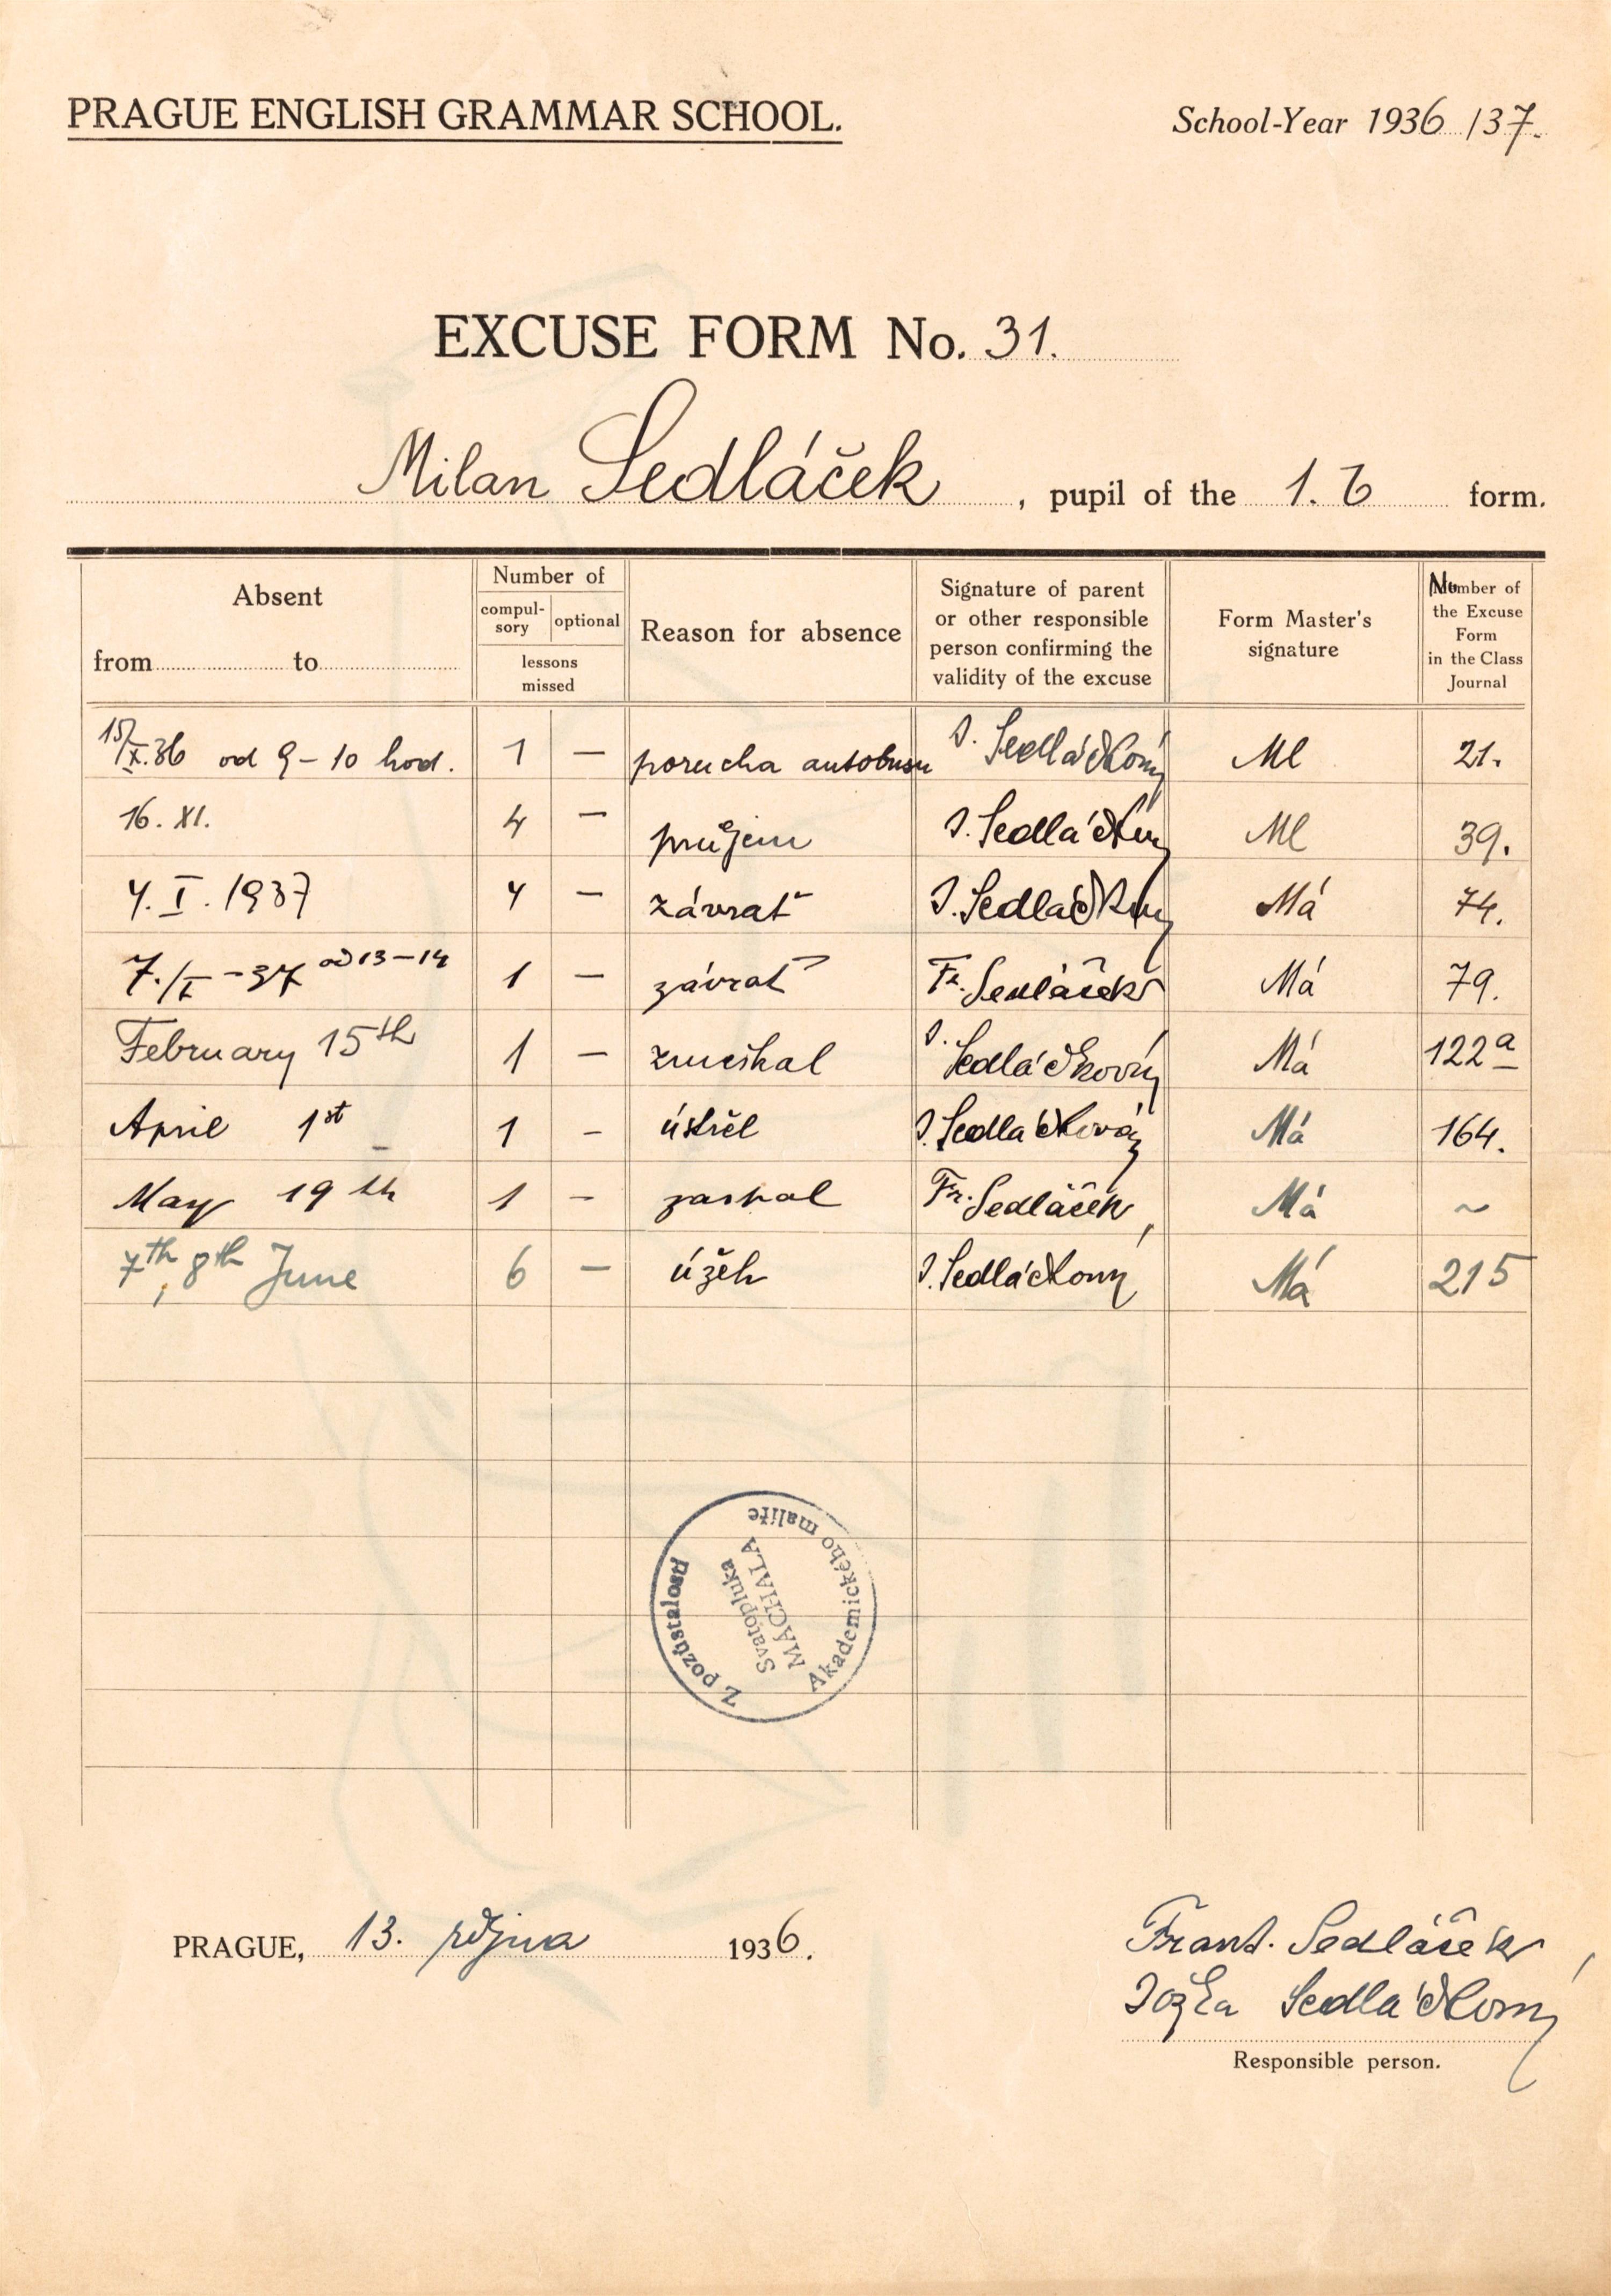 PRAGUE ENGLISH GRAMMAR SCHOOL.
School-Year 1936/37.
EXCUSE FORM No. 31.
Milan Sedláček, pupil of the 1. b form.
Absent
from to
Number of
compul-
sory
optional
lessons
missed
Reason for absence
Signature of parent
or other responsible
person confirming the
validity of the excuse
Form Master's
signature
Number of
the Excuse
Form
in the Class
Journal
15/X.36 od 9–10 hod. 1 — porucha autobusu J. Sedláčková Ml 21.
16. XI. 4 — průjem J. Sedláčková Ml 39.
4. I. 1937 4 — závrať J. Sedláčková Má 74.
7./I–37 od 13–14 1 — závrať Fr. Sedláček Má 79.
February 15th 1 — zmeškal J. Sedláčková Má 122a
April 1st 1 – J. Sedláčková Má 164.
May 19th 1 – zaspal Fr. Sedláček, Má ~
7th, 8th June 6 — úžeh J. Sedláčková Má 215
Z pozůstalosti
Akademického malíře
Svatopluka
MÁCHALA
PRAGUE, 13. října 1936.
Frant. Sedláček,
Jožka Sedláčková
Responsible person.